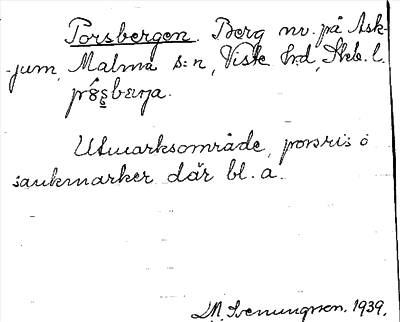 Porsbergen. Berg nv. på Ask-
jum, Malma s:n, Viste hrd, Skb. l.
Utmarksområde, porsris o
sankmarker där bl. a.
M. Svenungsson. 1939.